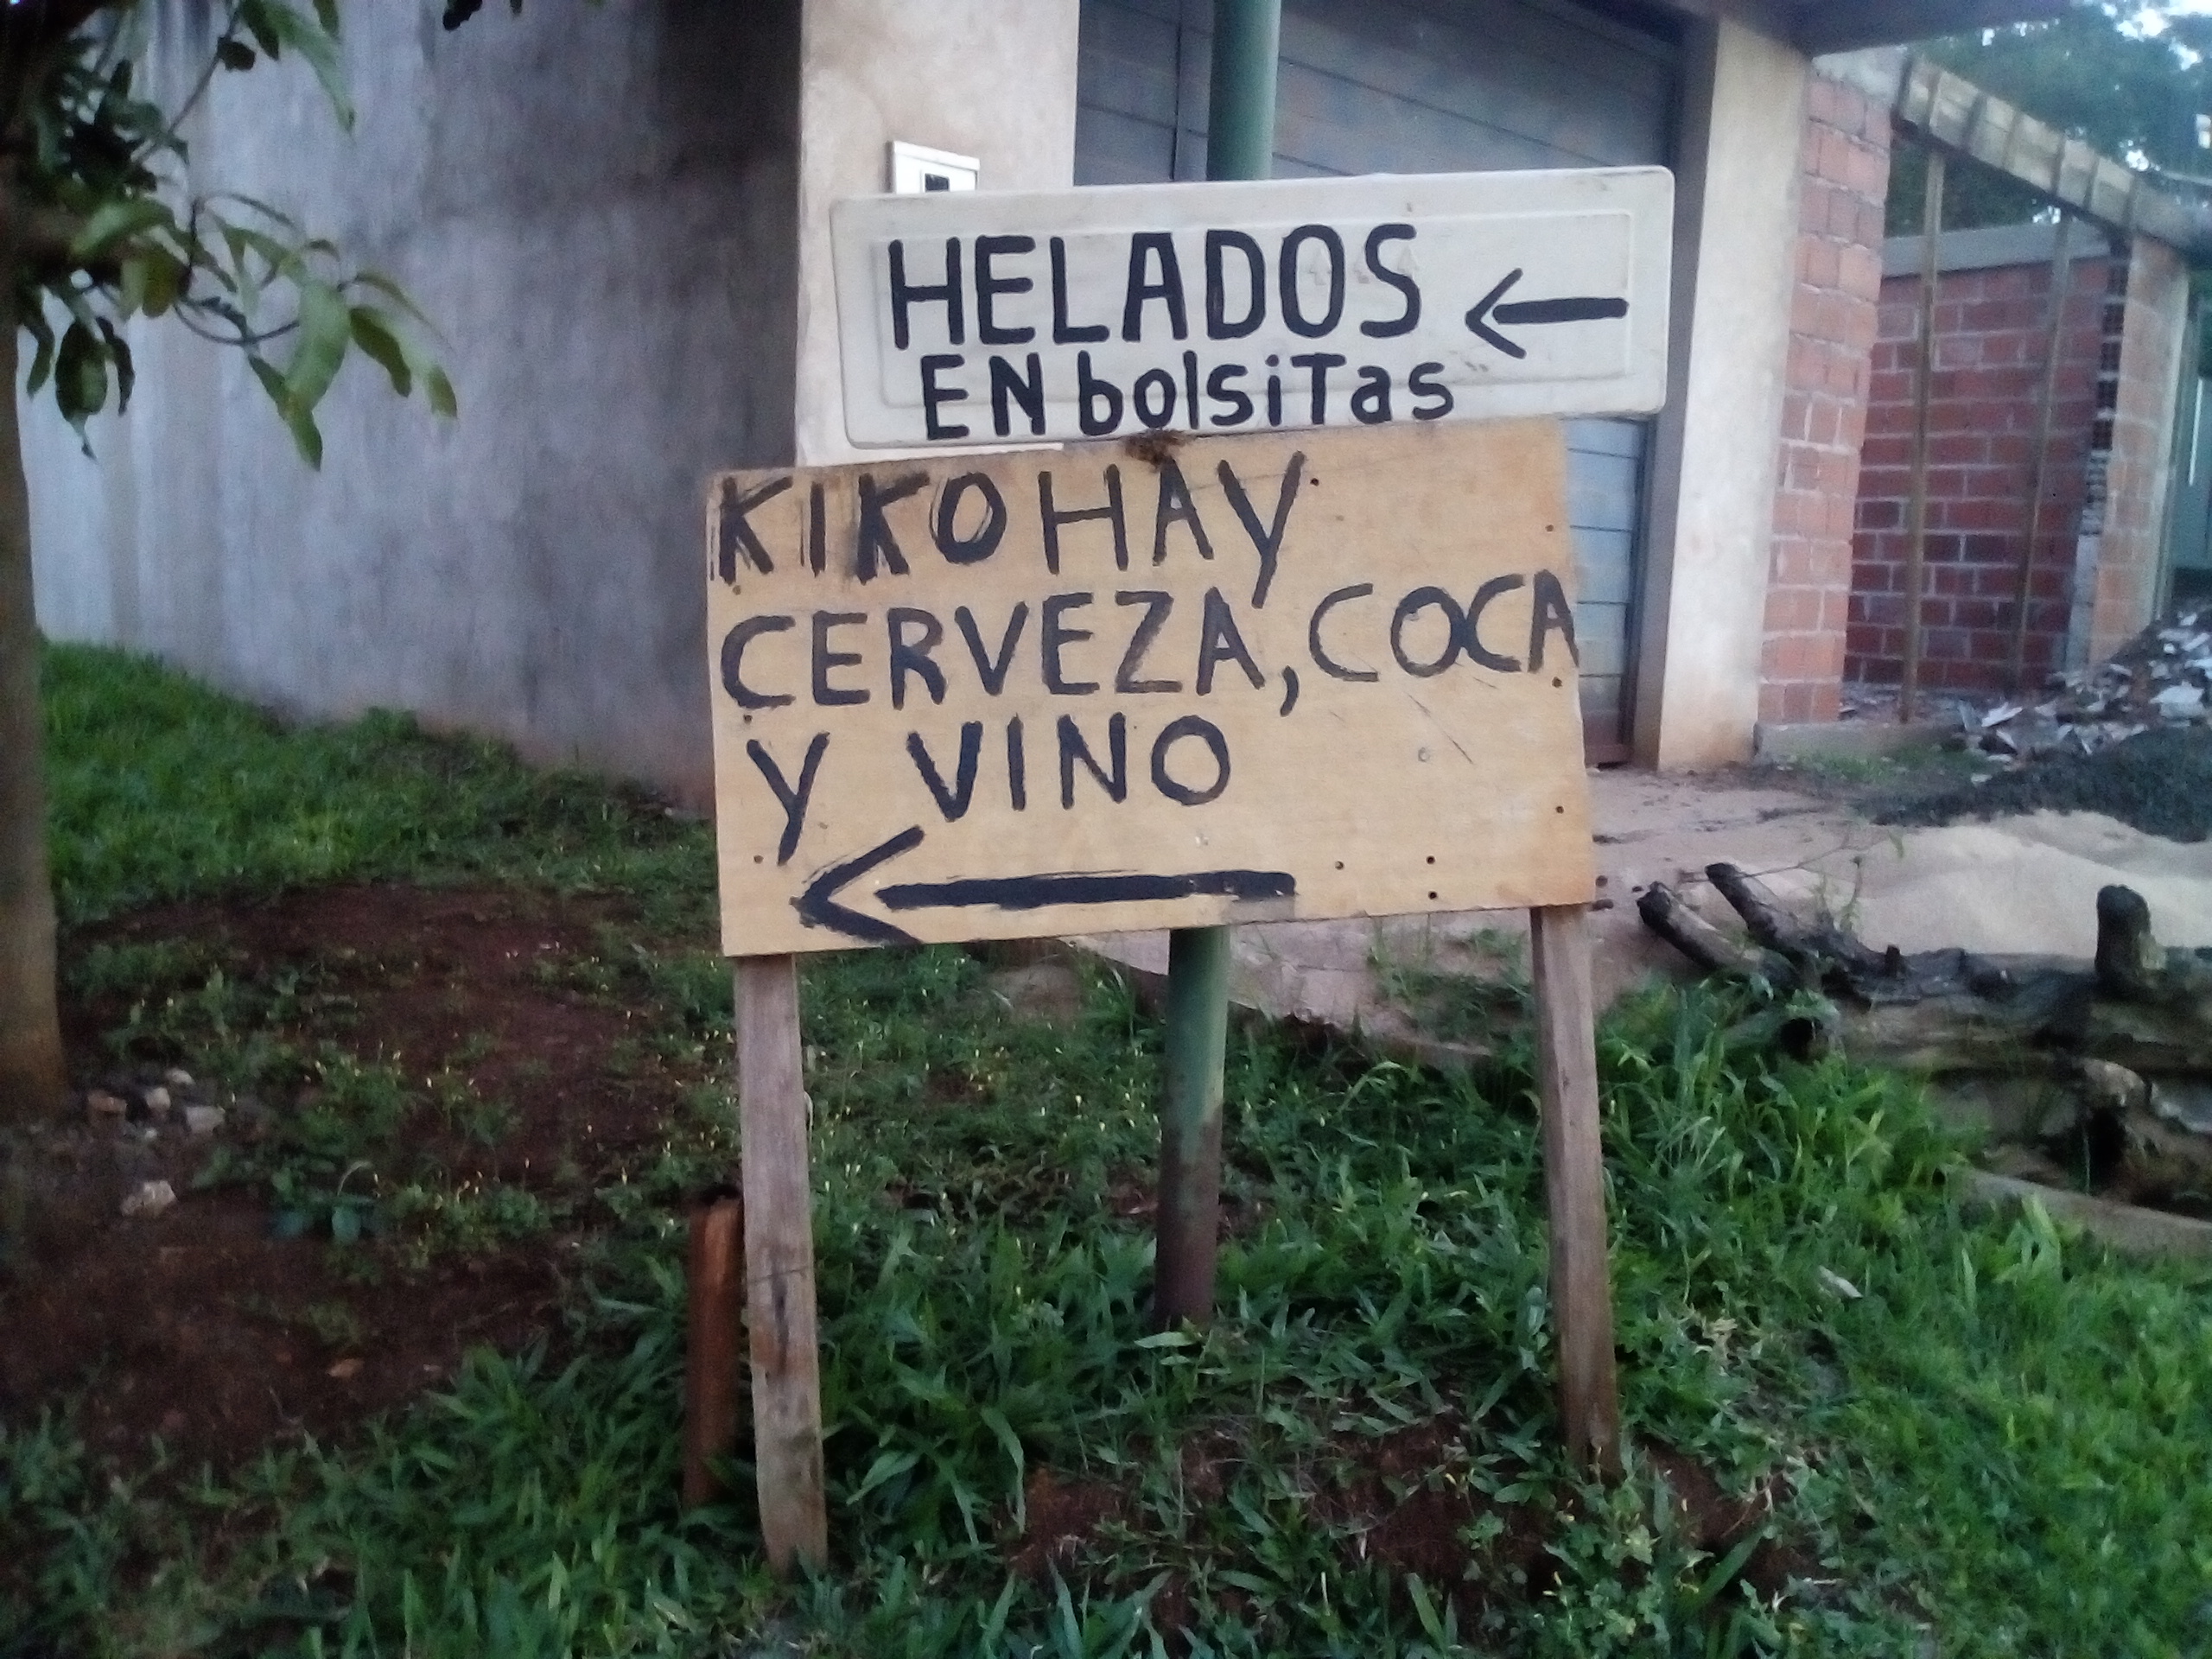 HELADOS
EN bolsiTas
KIKO HAY
CERVEZA, COCA
Y VINO